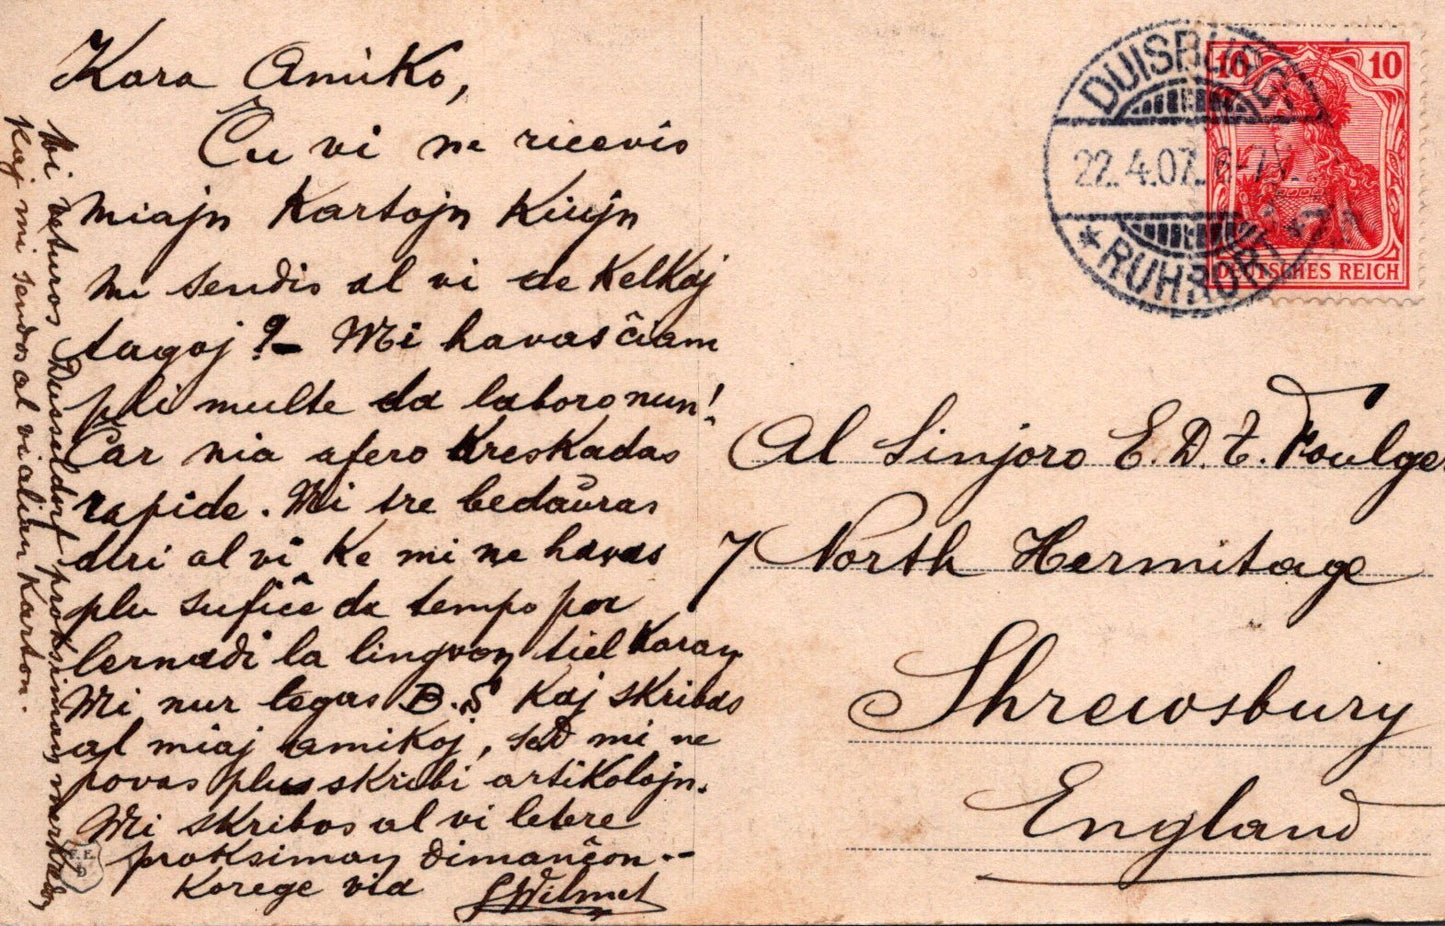 Kara Amiko,
Ĉu vi ne ricevis
miajn Kartojn Kiujn
mi sendis al vi de Kelkaj
tagoj? — Mi havas ĉiam
pli multe da laboro nun!
Ĉar nia afero Kreskadas
rapide. Mi tre bedaŭras
diri al vi Ke mi ne havas
plu sufiĉe da tempo por
lernadi la lingvon tiel Karan
Mi nur legas B.S. Kaj skribas
al miaj amikoj, sed mi ne
povas plu skribi artiKolojn.
Mi skribos al vi letere
proksiman dimanĉon --
Korege via
Wilmet
Mi veturos Dusseldorf proksiman merkredon
Kaj mi sendos al vi alian Karton.
DUISBURG
22.4.07. 6-7
* RUHRORT *
10 10
DEUTSCHES REICH
Al Sinjoro E.D.T. Foulge
7 North Hermitage
Shrewsbury
England